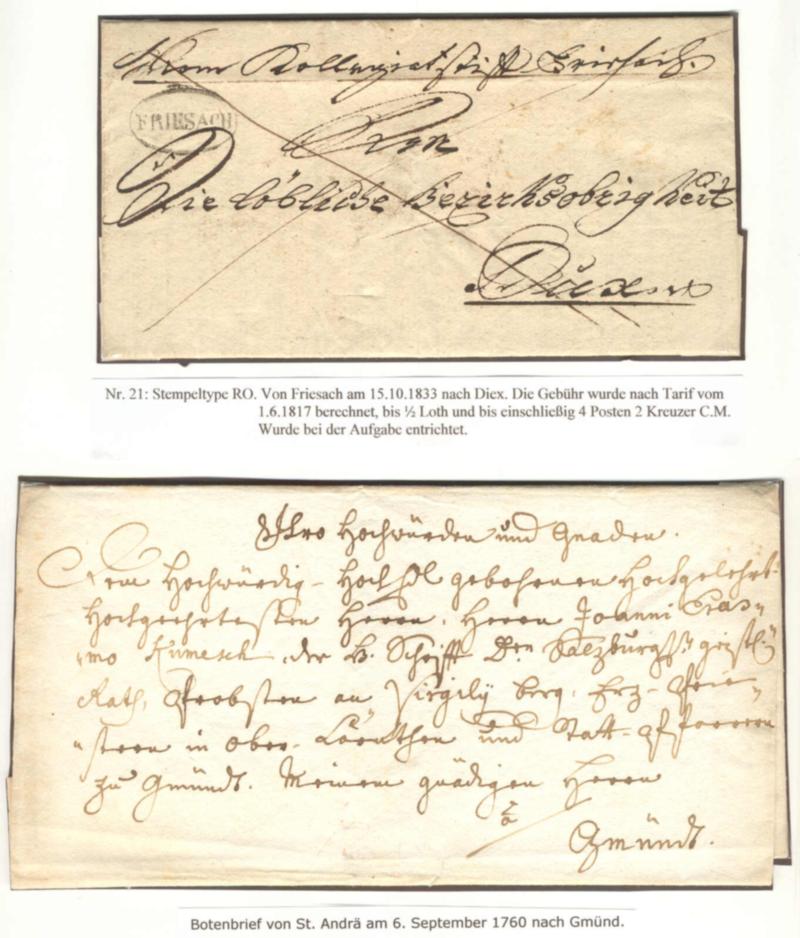 Vom Kollegiatstift Friesach.
FRIESACH
Von
Die löbliche Bezirksobrigkeit
Düex
Nr. 21: Stempeltype RO. Von Friesach am 15.10.1833 nach Diex. Die Gebühr wurde nach Tarif vom
1.6.1817 berechnet, bis ½ Loth und bis einschließig 4 Posten 2 Kreuzer C.M.
Wurde bei der Aufgabe entrichtet.
Ihro Hochwürden und Gnaden.
Dem Hochwürdig- Hoch Edl gebohrnen Hochgelehrt-
Hochgeehrtesten Herrn, Herrn Joanni Eras„
„mo Kumesch, der H. Schrifft Dr. Salzburgs. geistl.
Rath, Probsten an Virgily berg, Erz-Prie„
„stern in ober-Cärnthen und Statt-Pfarrern
zu Gmündt. Meinem gnädigen Herrn
Gmündt.
Botenbrief von St. Andrä am 6. September 1760 nach Gmünd.